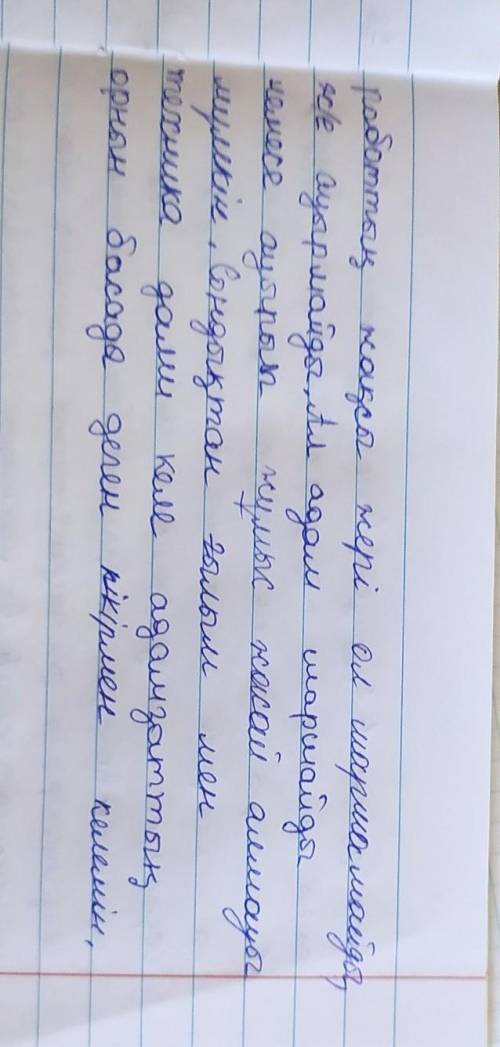 Роботтың жақсы жері ол шаршамайды,
әрі ауырмайды, Ал адам шаршайды
немесе ауырып жұмыс жасай алмауы
мүмкін. Сондықтан ғылым мен
техника дами келе адамзаттың
орнын басада деген пікірмен келемін,